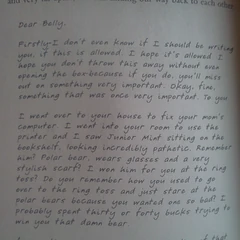 way back to each other
Dear Belly,
Firstly-I don't even know if I should be writing
you, if this is allowed. I hope it's allowed. I
hope you don't throw this away without even
opening the box-because if you do, you'll miss
out on something very important. Okay, fine,
something that was once very important. To you.
I went over to your house to fix your mom's
computer. I went into your room to use the
printer and I saw Junior Mint sitting on the
bookshelf, looking incredibly pathetic. Remember
him? Polar bear, wears glasses and a very
stylish scarf? I won him for you at the ring
toss? Do you remember how you used to go
over to the ring toss and just stare at the
polar bears because you wanted one so bad? I
probably spent thirty or forty bucks trying to
win you that damn bear.